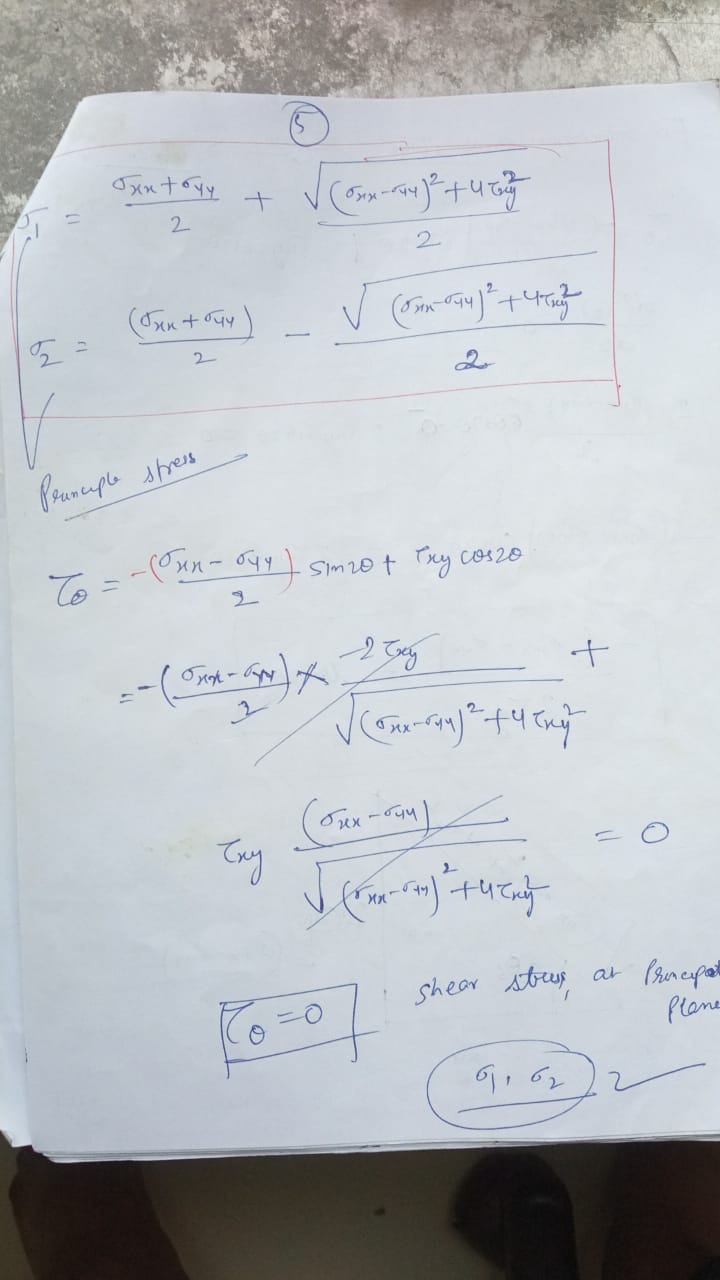 5
σ₁ = (σxx + σyy)/2 + √((σxx - σyy)² + 4τxy²)/2
σ₂ = (σxx + σyy)/2 - √((σxx - σyy)² + 4τxy²)/2
Principle stress
τθ = -(σxx - σyy)/2 sin2θ + τxy cos2θ
= -(σxx - σyy)/2 × -2τxy/√((σxx - σyy)² + 4τxy²) +
τxy (σxx - σyy)/√((σxx - σyy)² + 4τxy²) = 0
τθ = 0 shear stress, at Principal
Plane
σ₁, σ₂